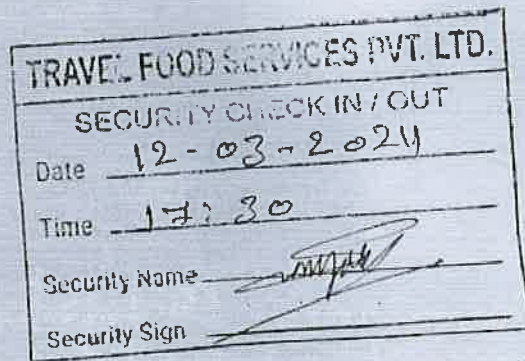 TRAVEL FOOD SERVICES PVT. LTD.
SECURITY CHECK IN / OUT
Date 12-03-2024
Time 17:30
Security Name
Security Sign